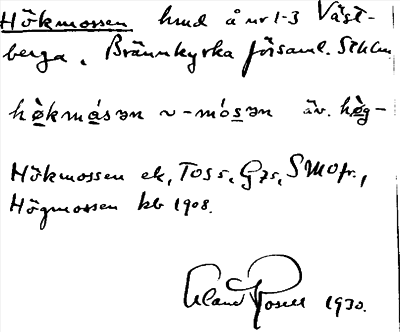 Hökmossen hmd å nr 1-3 Väst-
berga, Brännkyrka församl. Sthlm
hö̀kmásən ~ -mósən äv. hö̀g-
Hökmossen ek, Toss, Gzs, SMOfr.,
Högmossen kb 1908.
1930.